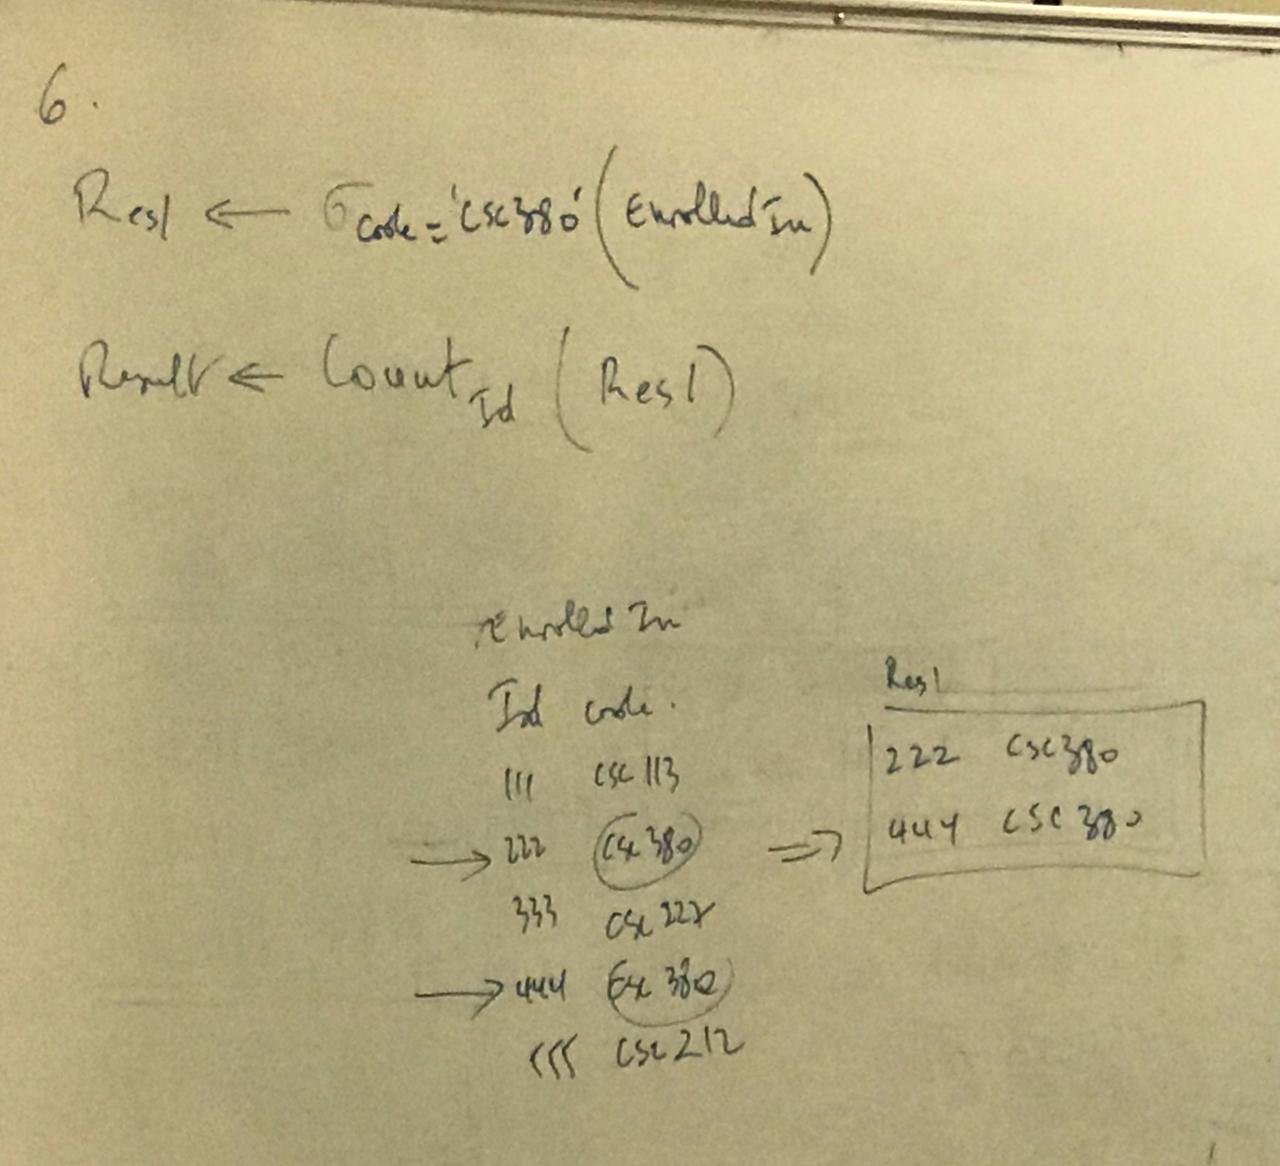 6.
Res1 ← σ code = 'CSC380' (Enrolled In)
Result ← Count Id (Res1)
Enrolled In
Id code.
111 csc 113
→ 222 csc 380 ⇒
333 csc 222
→ 444 csc 380
csc 212
Res1
222 CSC380
444 CSC 380